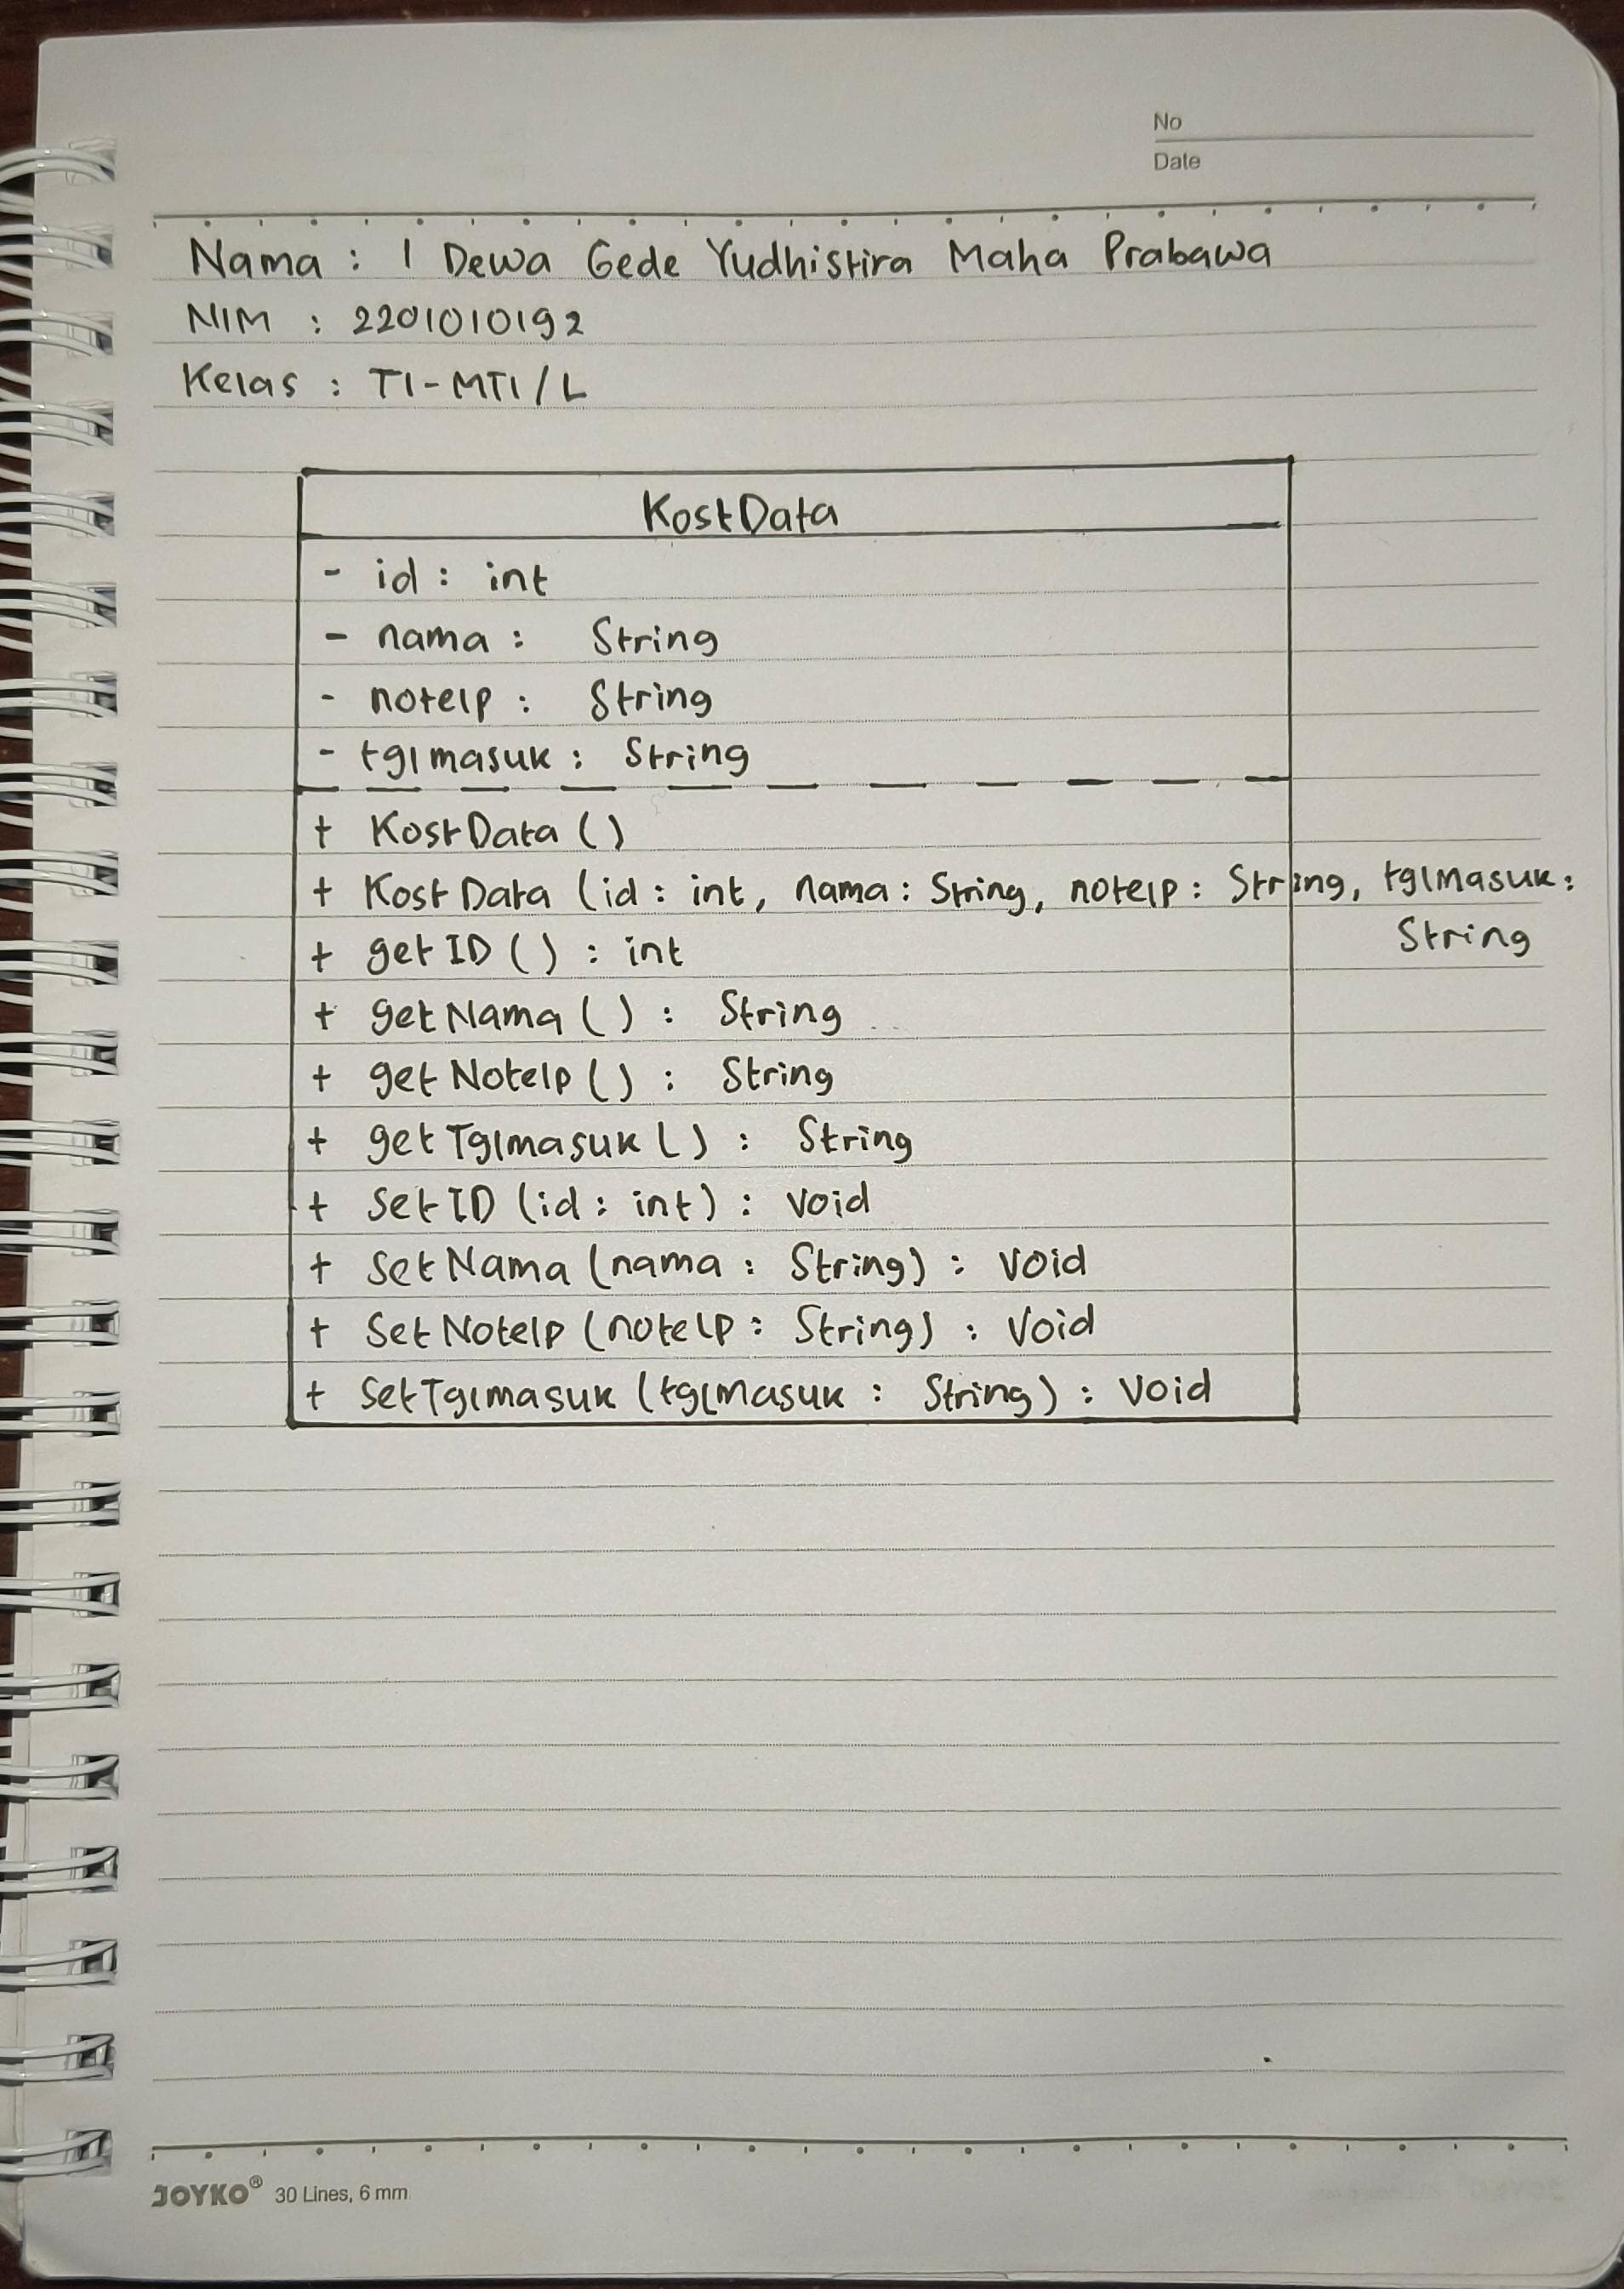 No
Date
Nama : I Dewa Gede Yudhistira Maha Prabawa
NIM : 2201010192
Kelas : TI-MTI/L
KostData
- id : int
- nama : String
- notelp : String
- tglmasuk : String
+ KostData ()
+ KostData (id : int, nama : String, notelp : String, tglmasuk :
String
+ getID () : int
+ getNama () : String
+ getNotelp () : String
+ getTglmasuk () : String
+ SetID (id : int) : Void
+ SetNama (nama : String) : Void
+ SetNotelp (notelp : String) : Void
+ SetTglmasuk (tglmasuk : String) : Void
JOYKO® 30 Lines, 6 mm